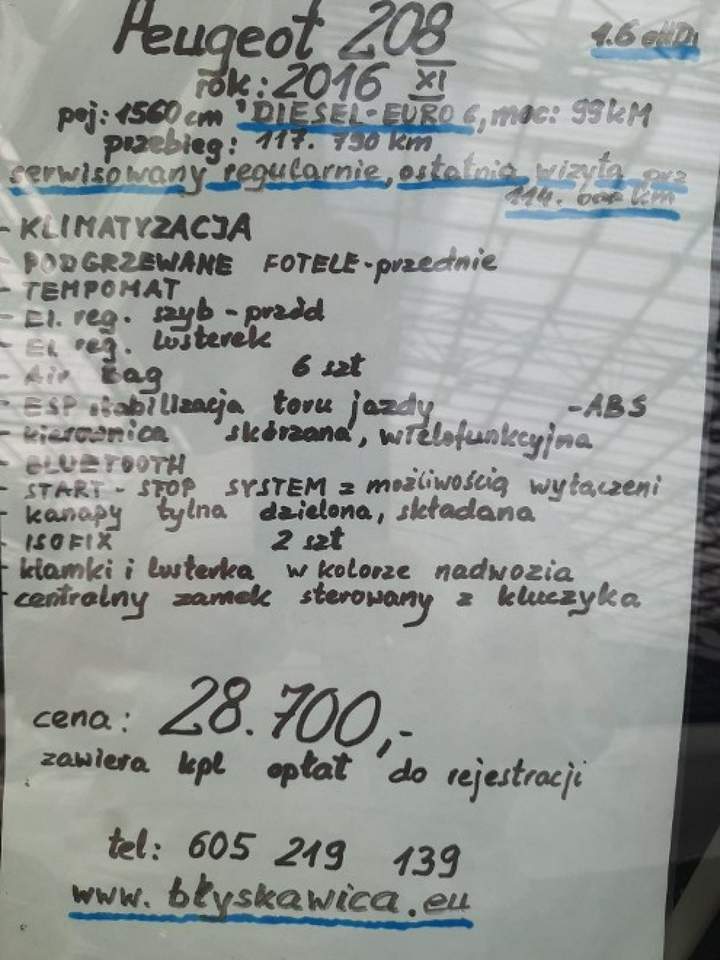 Peugeot 208 1.6 eHDi
rok: 2016 XI
poj: 1560 cm³ DIESEL-EURO 6, moc: 99 kM
przebieg: 117. 790 km
serwisowany regularnie, ostatnia wizyta prz
114. 000 km
- KLIMATYZACJA
- PODGRZEWANE FOTELE - przednie
- TEMPOMAT
- El. reg. szyb - przód
- El. reg. lusterek
- Air Bag 6 szt
- ESP stabilizacja toru jazdy - ABS
- kierownica skórzana, wielofunkcyjna
- BLUETOOTH
- START - STOP SYSTEM z możliwością wyłączeni
- kanapy tylna dzielona, składana
- ISOFIX 2 szt
- klamki i lusterka w kolorze nadwozia
- centralny zamek sterowany z kluczyka
cena: 28.700,-
zawiera kpl opłat do rejestracji
tel: 605 219 139
www.błyskawica.eu